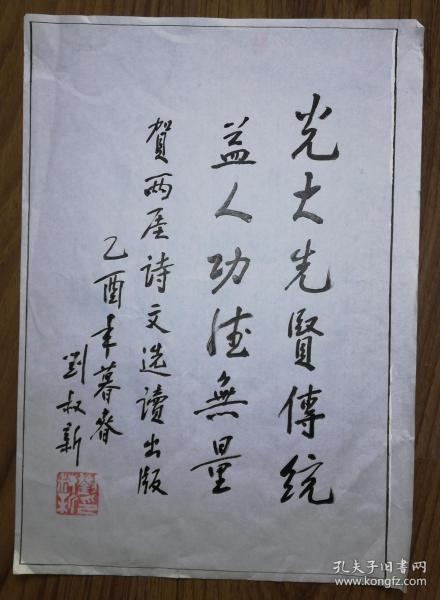 光大先賢傳統
益人功德無量
賀两屋詩文选讀出版
乙酉年暮春
劉叔新
孔夫子旧書网
www.kongfz.com